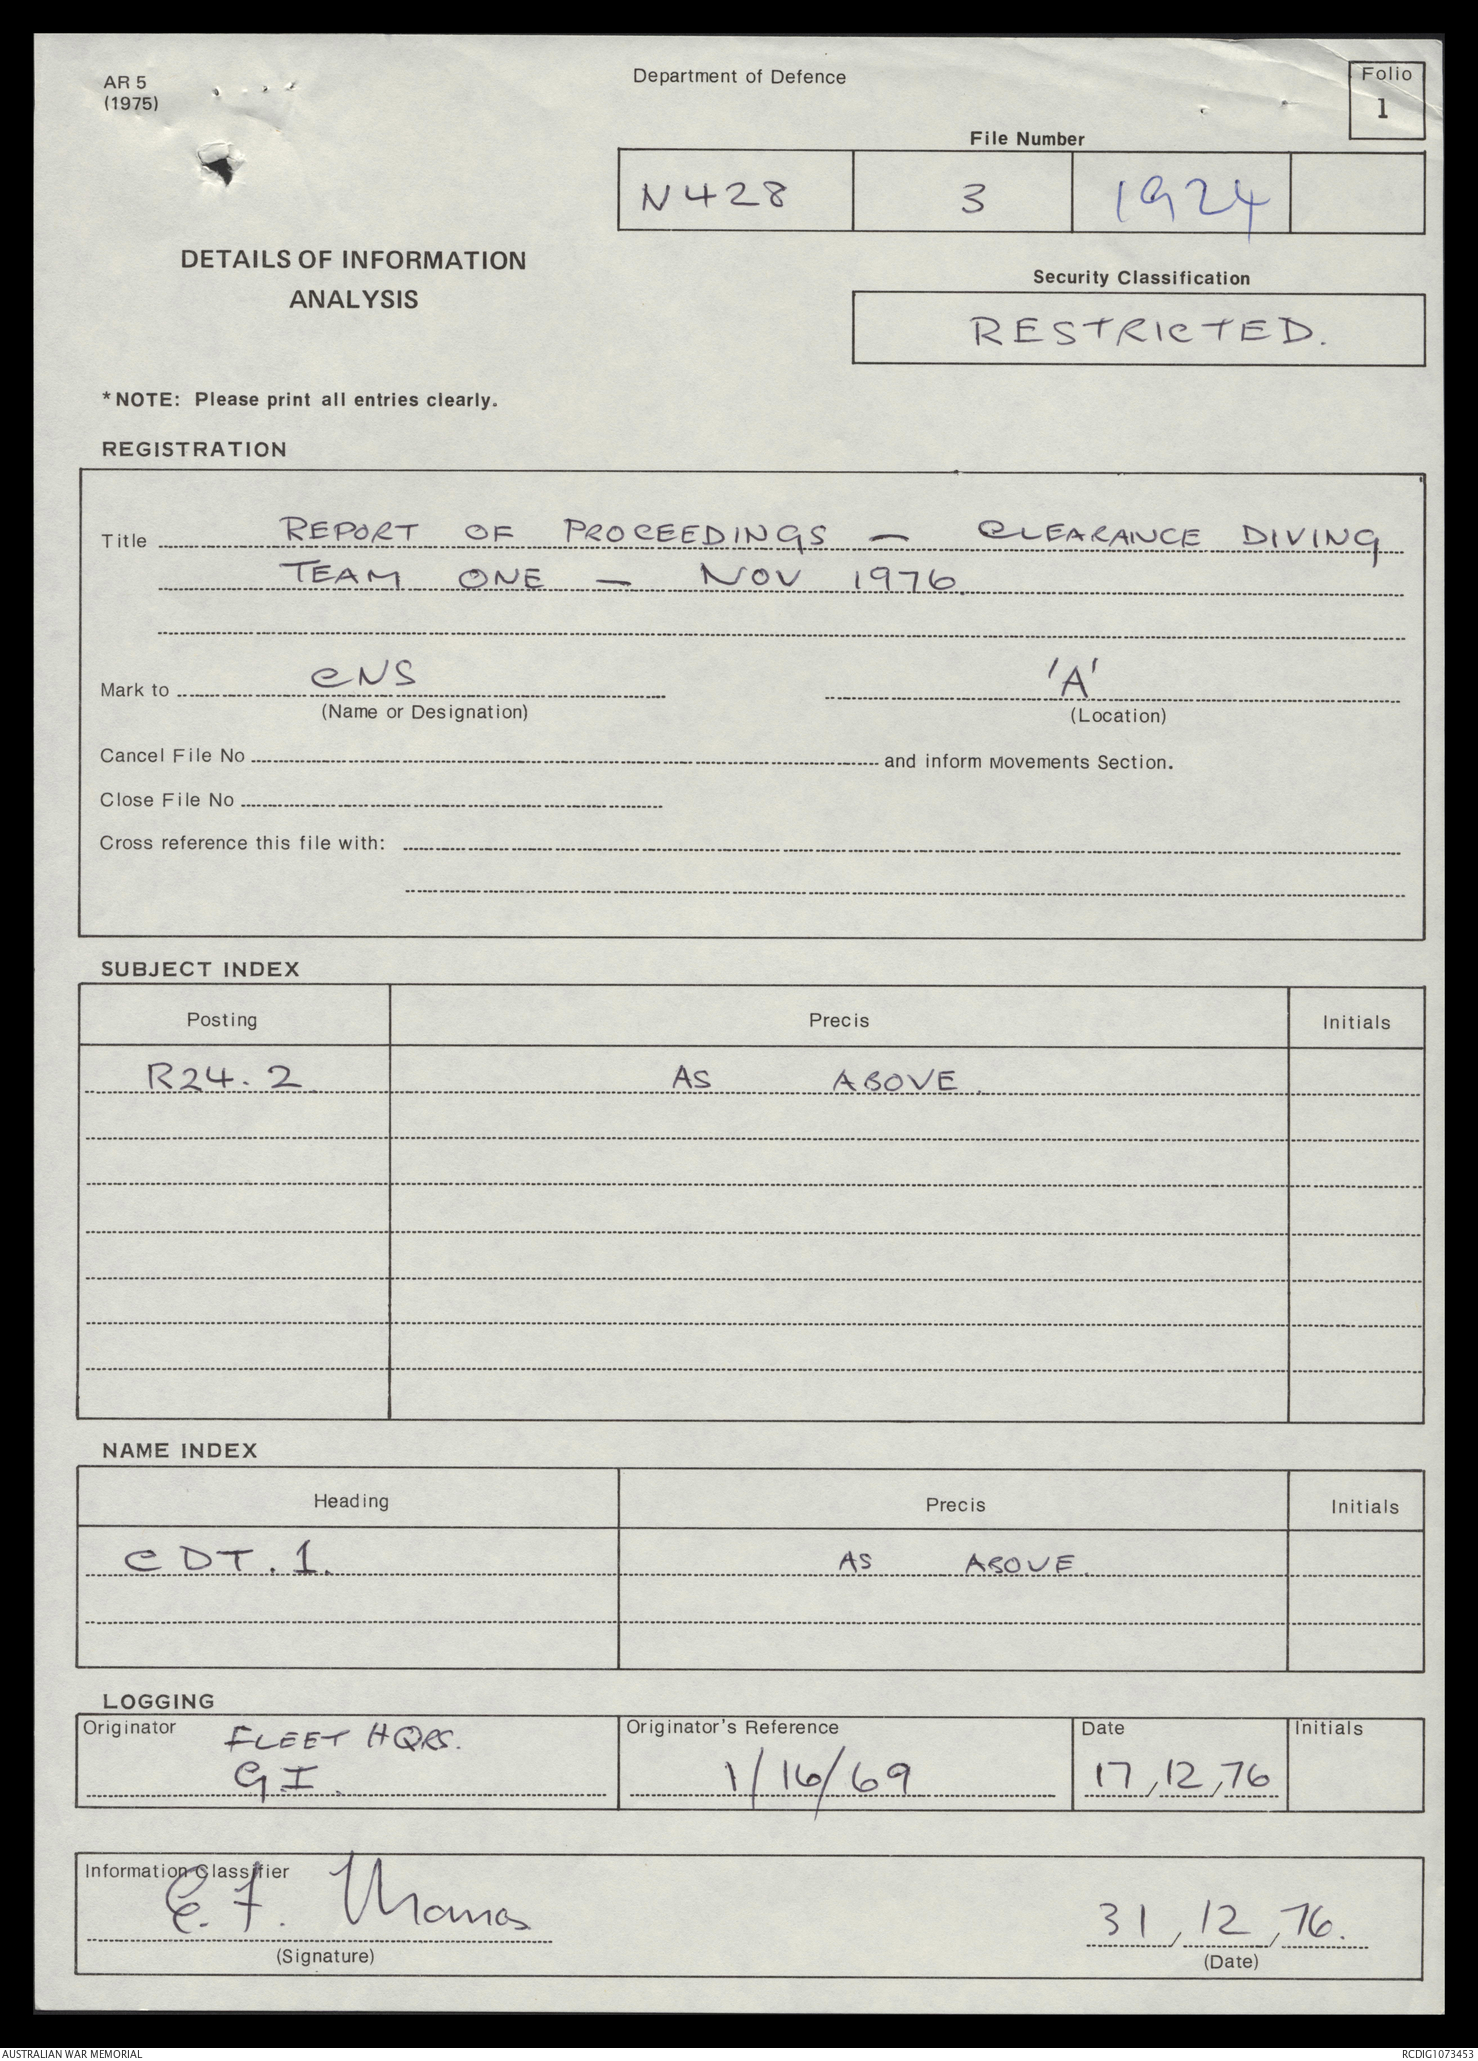 AR 5
(1975)
Department of Defence
Folio
1
File Number
N428 3 1924
DETAILS OF INFORMATION
ANALYSIS
Security Classification
RESTRICTED.
*NOTE: Please print all entries clearly.
REGISTRATION
Title REPORT OF PROCEEDINGS — CLEARANCE DIVING
TEAM ONE — NOV 1976
Mark to CNS 'A'
(Name or Designation) (Location)
Cancel File No and inform Movements Section.
Close File No
Cross reference this file with:
SUBJECT INDEX
Posting Precis Initials
R24.2 AS ABOVE.
NAME INDEX
Heading Precis Initials
CDT.1. AS ABOVE.
LOGGING
Originator Originator's Reference Date Initials
FLEET HQRS.
GI. 1/16/69 17,12,76
Information Classifier
E. F. Thomas 31,12,76.
(Signature) (Date)
AUSTRALIAN WAR MEMORIAL RCDIG1073453